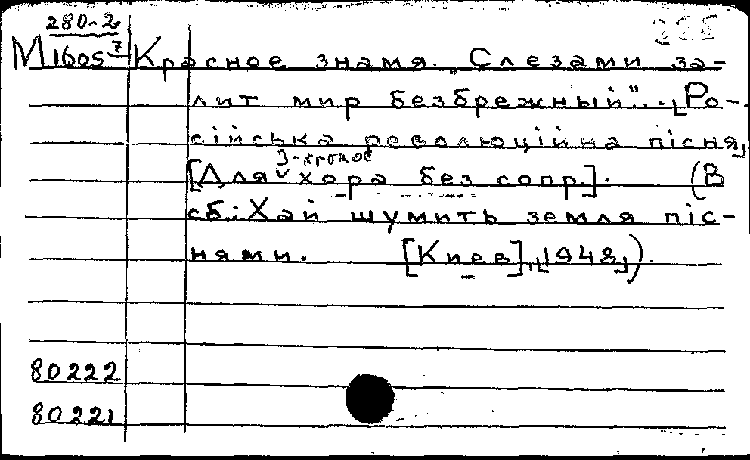 280-2
М1605⁷ Красное знамя. „Слезами за-
лит мир безбрежный"... [Ро-
сійська революційна пісня]
3-голос
[Для ˅ хора без сопр.]. (В
сб.: Хай шумить земля піс-
нями. [Киев], [1948]).
80222
80221